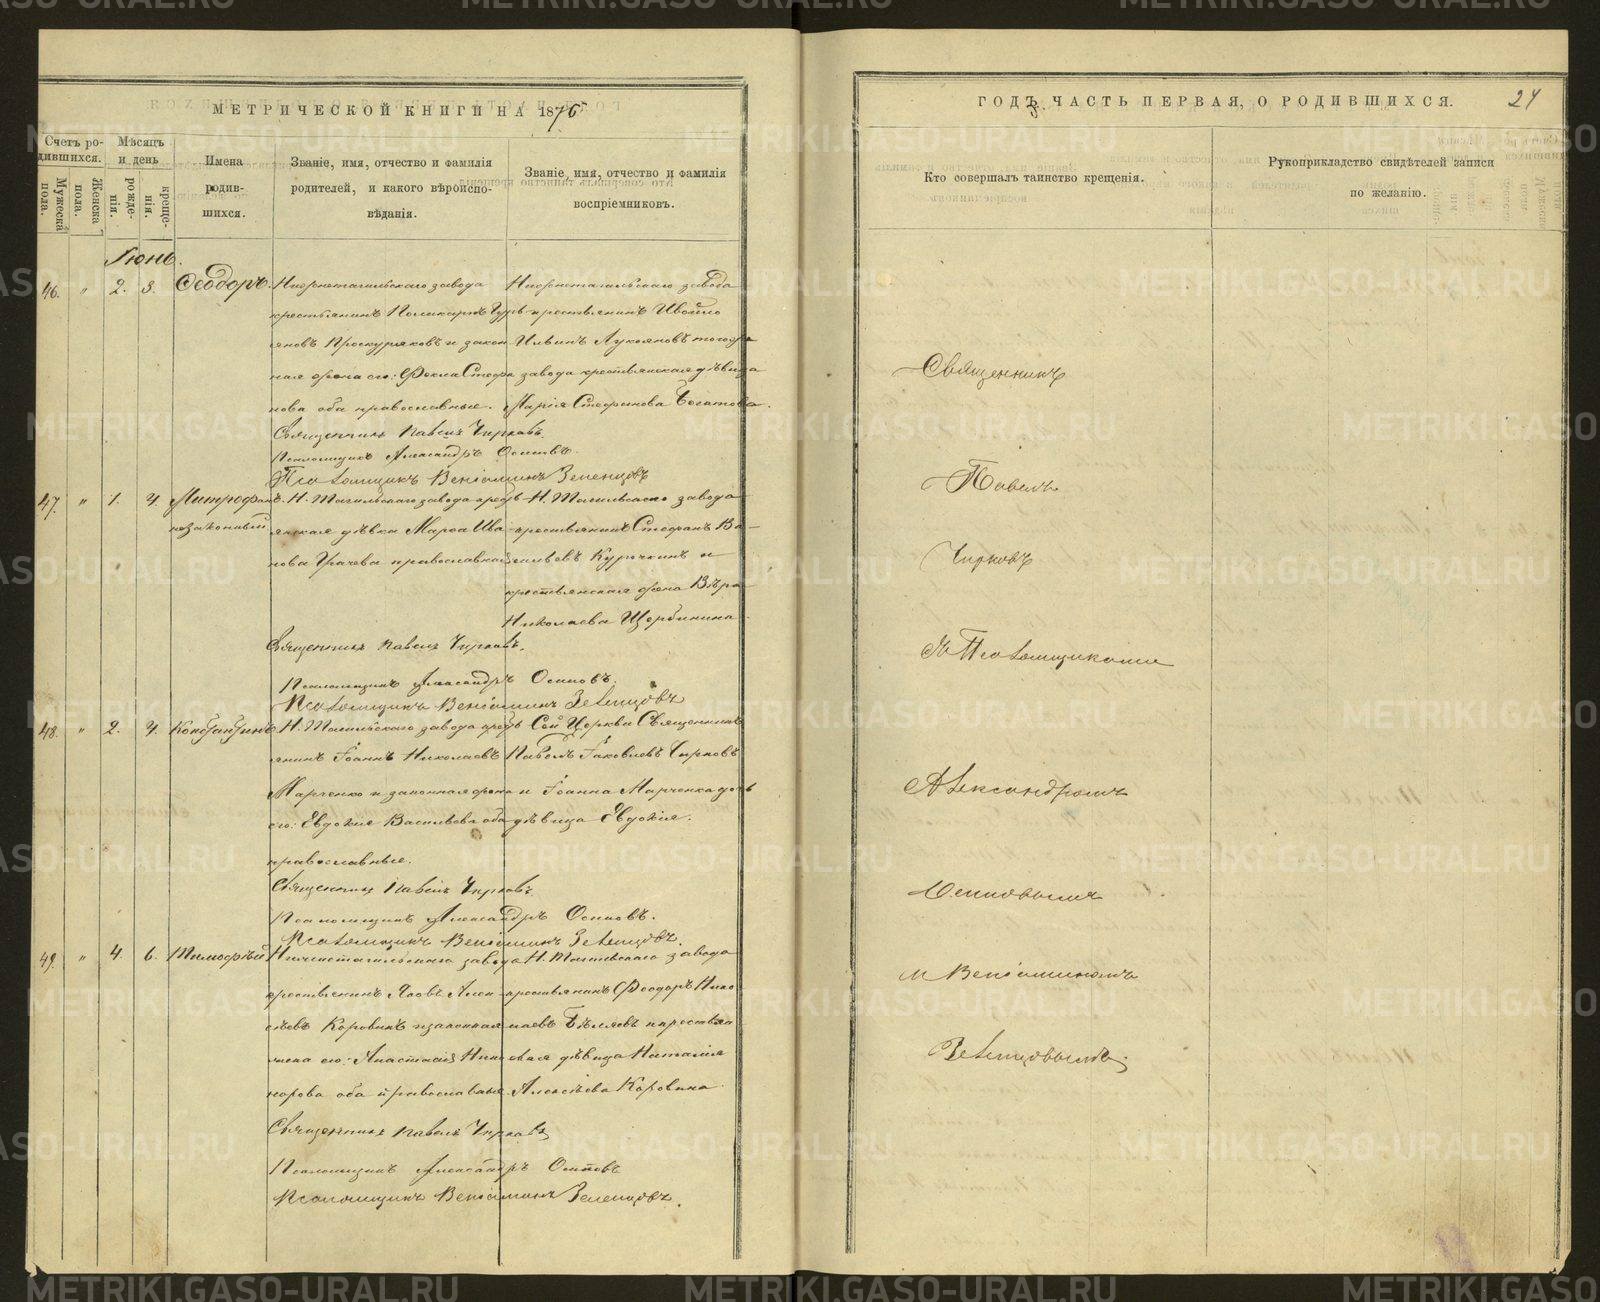 МЕТРИЧЕСКОЙ КНИГИ НА 1876
Счетъ родившихся.
Мужеска пола.
Женска пола.
Мѣсяцъ и день
рожденія.
крещенія.
Имена
родив-
шихся.
Званіе, имя, отчество и фамилія
родителей, и какого вѣроиспо-
вѣданія.
Званіе, имя, отчество и фамилія
воспріемниковъ.
Іюнь.
46. " 2. 3. Ѳеодоръ.
Нижнетагильскаго завода
крестьянинъ Поликарпъ
Проскуряковъ и закон
ная жена его: Ѳекла Стефа
нова оба православные.
Нижнетагильскаго завода
крестьянинъ
Ильинъ Лукояновъ того же
завода крестьянская дѣвица
Марія Стефанова Богатова.
Священникъ Павелъ Чирковъ.
Псаломщикъ Александръ Осиповъ.
Псаломщикъ Веніаминъ Зеленцовъ
47. " 1. 4. Митрофанъ
незаконный
Н. Тагильскаго завода кресть
янская дѣвка Марѳа Ива
нова Грачева православная
Н. Тагильскаго завода
крестьянинъ Стефанъ Ва
сильевъ Курочкинъ и
крестьянская жена Вѣра
Николаева Щербинина
Священникъ Павелъ Чирковъ.
Псаломщикъ Александръ Осиповъ.
Псаломщикъ Веніаминъ Зеленцовъ
48. " 2. 4. Константинъ
Н. Тагильскаго завода кресть
янинъ Іоаннъ Николаевъ
Марченко и законная жена
его: Евдокія Васильева оба
православные.
Сей Церкви Священникъ
Павелъ Іаковлевъ Чирковъ
и Іоанна Марченка дочь
дѣвица Евдокія.
Священникъ Павелъ Чирковъ
Псаломщикъ Александръ Осиповъ.
Псаломщикъ Веніаминъ Зеленцовъ.
49. " 4. 6. Тимоѳей
Нижнетагильскаго завода
крестьянинъ Яковъ Алек
сѣевъ Коровинъ и законная
жена его: Анастасія Ники
форова оба православные.
Н. Тагильскаго завода
крестьянинъ Ѳеодоръ Нико
лаевъ Бѣляевъ и крестьян
ская дѣвица Наталія
Алексѣева Коровина.
Священникъ Павелъ Чирковъ
Псаломщикъ Александръ Осиповъ
Псаломщикъ Веніаминъ Зеленцовъ.
ГОДЪ, ЧАСТЬ ПЕРВАЯ, О РОДИВШИХСЯ. 24
Кто совершалъ таинство крещенія.
Рукоприкладство свидѣтелей записи
по желанію.
Священникъ
Павелъ
Чирковъ
съ Псаломщиками
Александромъ
Осиповымъ
и Веніаминомъ
Зеленцовымъ.
METRIKI.GASO-URAL.RU